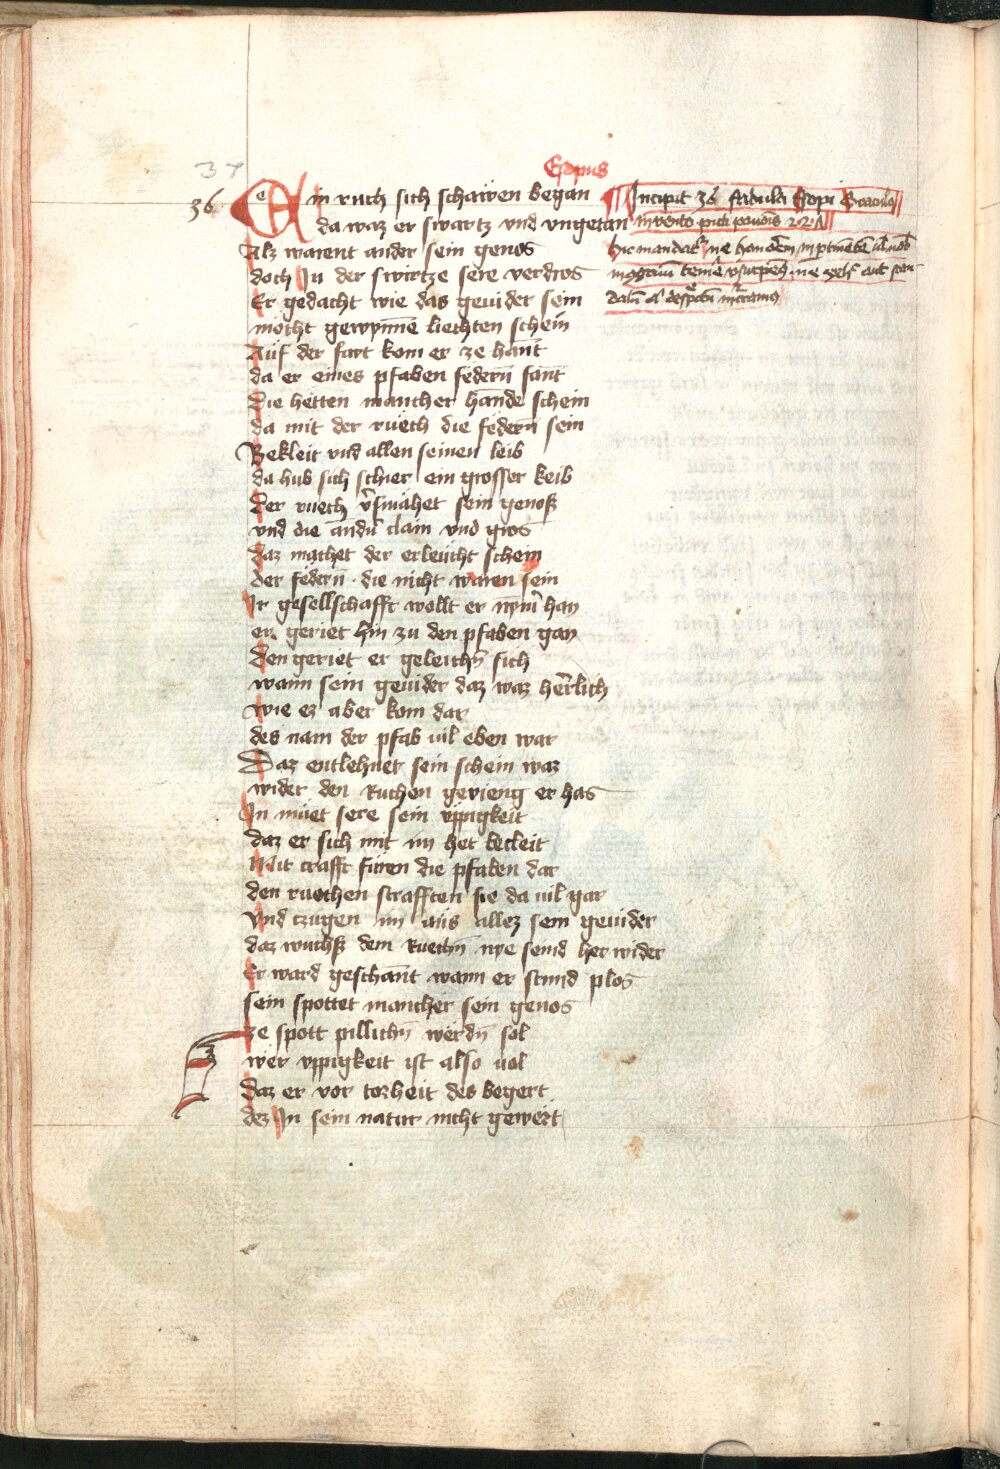 37
Esopus
36
Ein ruch sich schawen began
da waz er swartz vnd vngetan
Alz warent ander sein genos
doch In der swirtze sere verdros
Er gedacht wie das gevider sein
mocht gewynne liechten schein
Auf der fart kom er ze hant
da er eines pfaben federn fant
Die hetten mancher hande schein
da mit der ruech die federn sein
Bekleit vnd allen seinen leib
da hub sich schier ein grosser keib
Der ruech v̄smahet sein genoß
vnd die andn̄ clain vnd gros
daz machet der erleucht schein
der federn die nicht waren sein
Ir gesellschafft wollt er nym̄ han
er geriet hin zu den pfaben gan
den geriet er geleichn̄ sich
wann sein gevider daz waz herlich
wie ez aber kom dar
des nam der pfab vil eben war
Daz entlehnet sein schein waz
wider den Ruchen gevieng er has
In müet sere sein vppigkeit
daz er sich mit im het becleit
Mit crafft furen die pfaben dar
den ruochen strafften sie da vil gar
vnd tzugen im aus allez sein gevider
daz wuchß dem Ruechn̄ nye seind her wider
Er ward geschant wann er stund plos
sein spottet mancher sein genos
ze spott pillichn̄ werdn̄ sol
wer vppigkeit ist also vol
Daz er vor torheit des begert
dez In sein natur nicht gewert
Incipit 36 fabula Esopi
invento
hic mandat ne